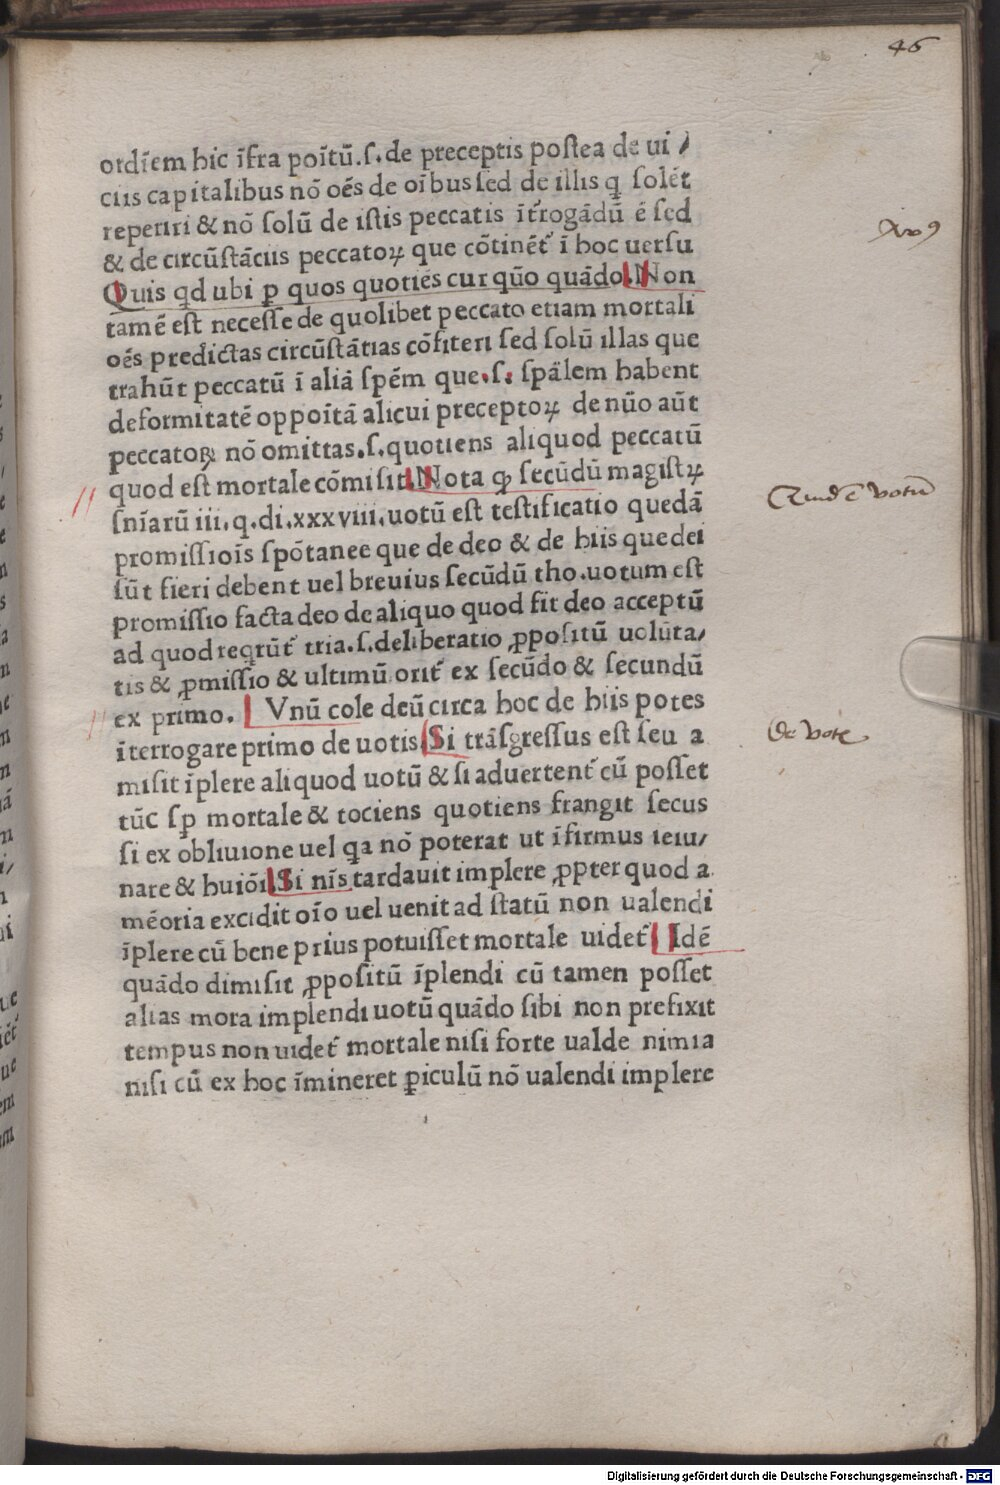 46
ordīem hic īfra poītū.ſ.de preceptis poſtea de ui /
ciis capitalibus nō oēs de oībus ſed de illis q̄ ſolēt
reperiri & nō ſolū de iſtis peccatis ītrogādū ē ſed
& de circūſtāciis peccatoꝝ que cōtinēt̄ ī hoc uerſu
Quis qd ubi p̱ quos quotiēs cur quō quādo. Non
tamē eſt neceſſe de quolibet peccato etiam mortali
oēs predictas circūſtātias cōfiteri ſed ſolū illas que
trahūt peccatū ī aliā ſpēm que.ſ. ſpālem habent
deformitatē oppoītā alicui preceptoꝝ de nūo aūt
peccatoꝝ nō omittas.ſ.quotiens aliquod peccatū
quod eſt mortale cōmiſit. Nota ꝙ ſecūdū magiſtꝝ
ſnīarū iii.q.di.xxxviii.uotū eſt teſtificatio quedā
promiſſioīs ſpōtanee que de deo & de hiis que dei
ſūt fieri debent uel breuius ſecūdū tho.uotum eſt
promiſſio facta deo de aliquo quod ſit deo acceptū
ad quod reqrūt̄ tria.ſ.deliberatio ꝓpoſitū uolūta/
tis & ꝓmiſſio & ultimū orit̄ ex ſecūdo & ſecundū
ex primo. Vnū cole deū circa hoc de hiis potes
īterrogare primo de uotis Si trāſgreſſus eſt ſeu a
miſit īplere aliquod uotū & ſi aduertent̄ cū poſſet
tūc ſp̄ mortale & tociens quotiens frangit ſecus
ſi ex obliuione uel qa nō poterat ut īfirmus ieiu/
nare & huiōi Si nīs tardauit implere ꝓpter quod a
mēoria excidit oīo uel uenit ad ſtatū non ualendi
īplere cū bene prius potuiſſet mortale uidet̄ Idē
quādo dimiſit ꝓpoſitū īplendi cū tamen poſſet
alias mora implendi uotū quādo ſibi non prefixit
tempus non uidet̄ mortale niſi forte ualde nimia
niſi cū ex hoc īmineret ꝑiculū nō ualendi implere
Quid ē votū
De vote
Digitalisierung gefördert durch die Deutsche Forschungsgemeinschaft - DFG